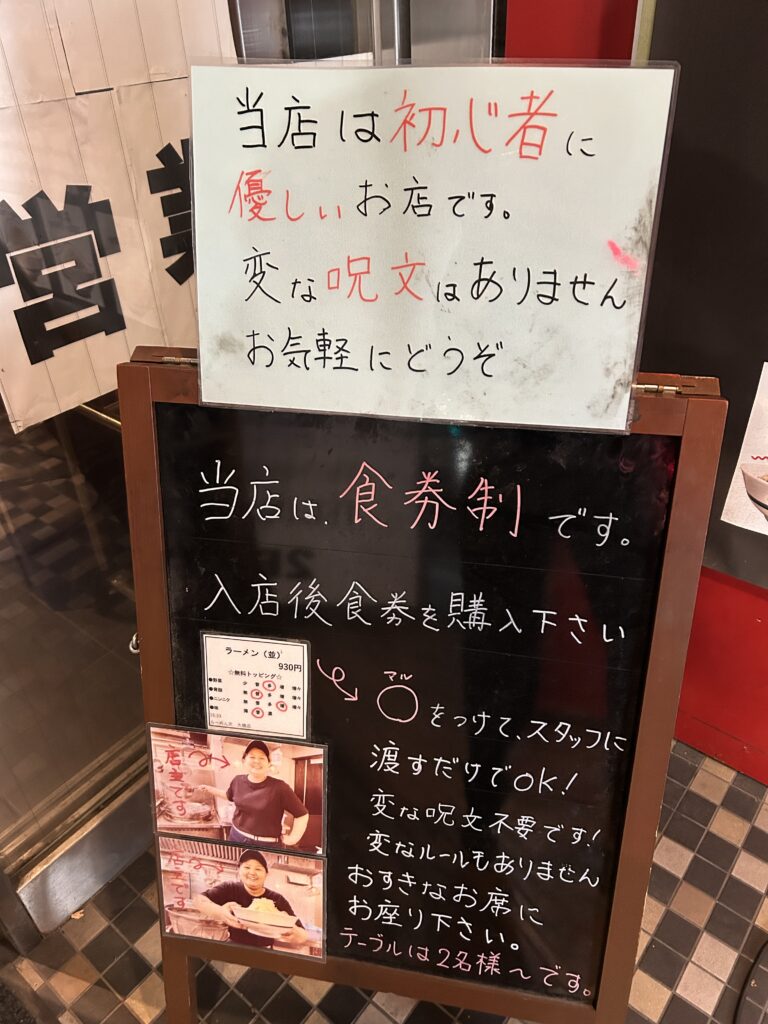 営業
当店は初心者に
優しいお店です。
変な呪文はありません
お気軽にどうぞ
当店は、食券制です。
入店後食券を購入下さい
ラーメン(並)
930円
☆無料トッピング☆
●野菜 少 普 多 増 増々
●ニンニク
マル
○をつけて、スタッフに
渡すだけでOK!
変な呪文不要です!
変なルールもありません
おすきなお席に
お座り下さい。
テーブルは2名様〜です。
店主です
店主です